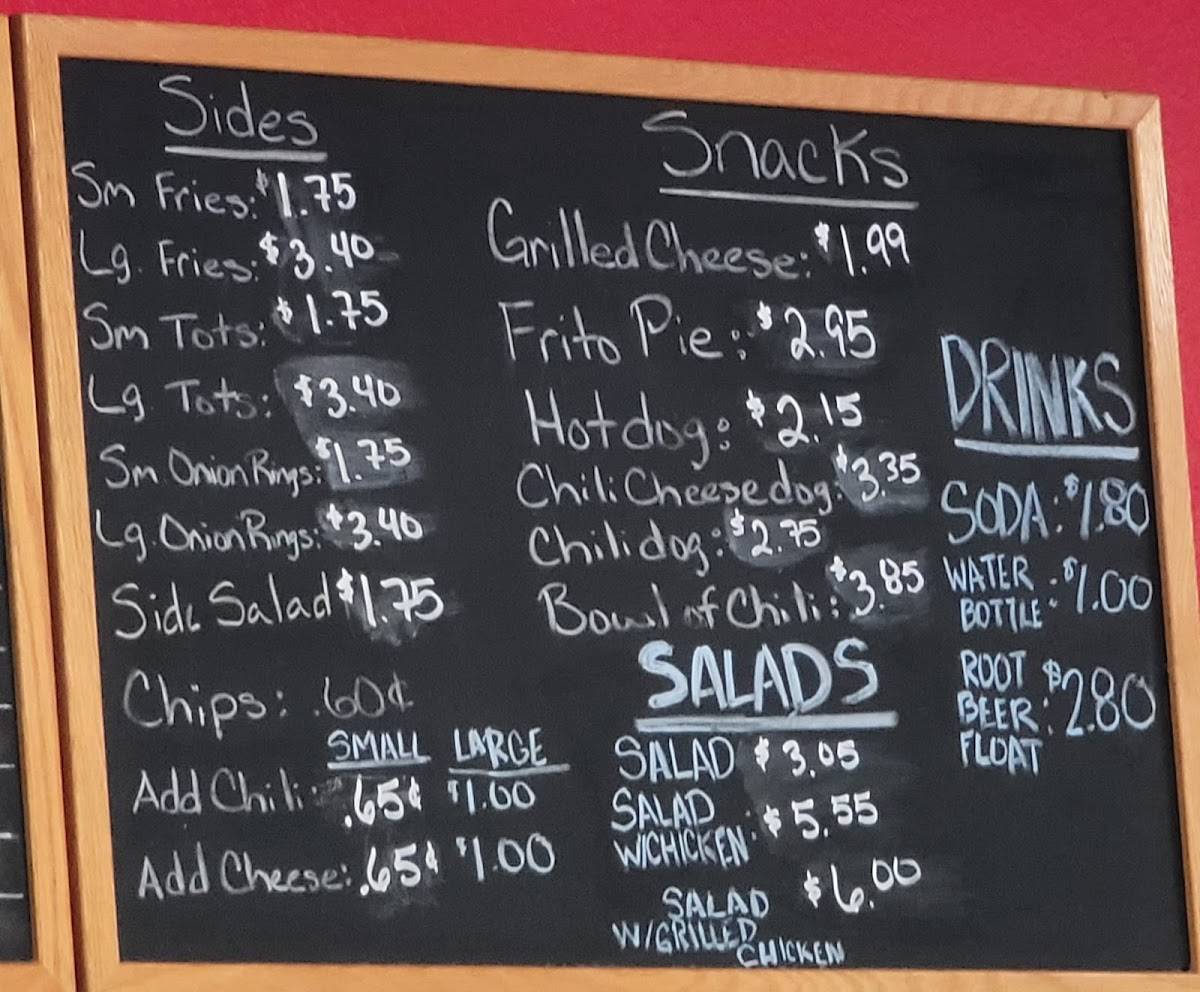 Sides
Sm Fries: $1.75
Lg. Fries: $3.40
Sm Tots: $1.75
Lg. Tots: $3.40
Sm Onion Rings: $1.75
Lg. Onion Rings: $3.40
Side Salad $1.75
Chips: .60¢
SMALL LARGE
Add Chili: .65¢ $1.00
Add Cheese: .65¢ $1.00
Snacks
Grilled Cheese: $1.99
Frito Pie: $2.95
Hotdog: $2.15
Chili Cheesedog: $3.35
Chilidog: $2.75
Bowl of Chili: $3.85
SALADS
SALAD $3.05
SALAD
W/CHICKEN $5.55
SALAD $6.00
W/GRILLED
CHICKEN
DRINKS
SODA: $1.80
WATER
BOTTLE: $1.00
ROOT
BEER: $2.80
FLOAT